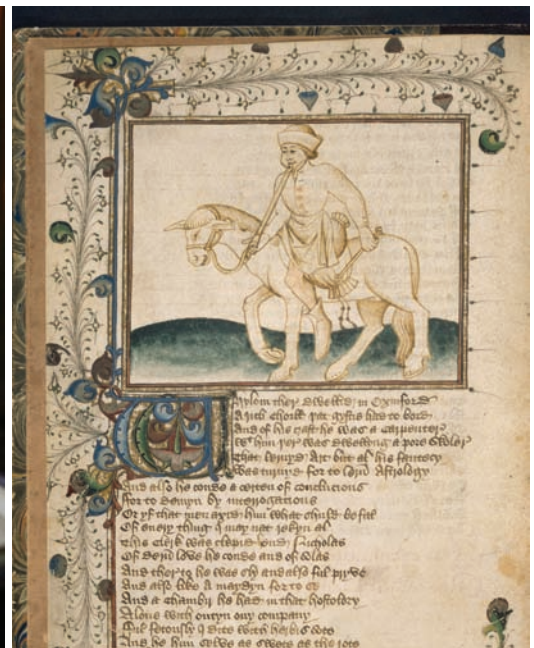 Whylom ther dwellid in Oxinford
A rich chorll þat gystis had to bord
And of his craft he was a carpenter
With him þer was dwelling a pore skoler
That lernyd Art but al his fantecy
Was turnyd for to lern Astrology
And also he conde a certen of conclucions
For to demyn by interrogacions
Or yf that men axid him what shuld be fal
Of euery thing I may nat rekyn al
This clerk was clepid hend Nicholas
Of dern love he conde and of solas
And ther to he was sly and also ful pryve
And also like A maydyn for to se
And a chambir he had in that hostelery
Alone with outyn ony company
Ful fetously I dite with herbis sote
And he him selve as swete as the rote